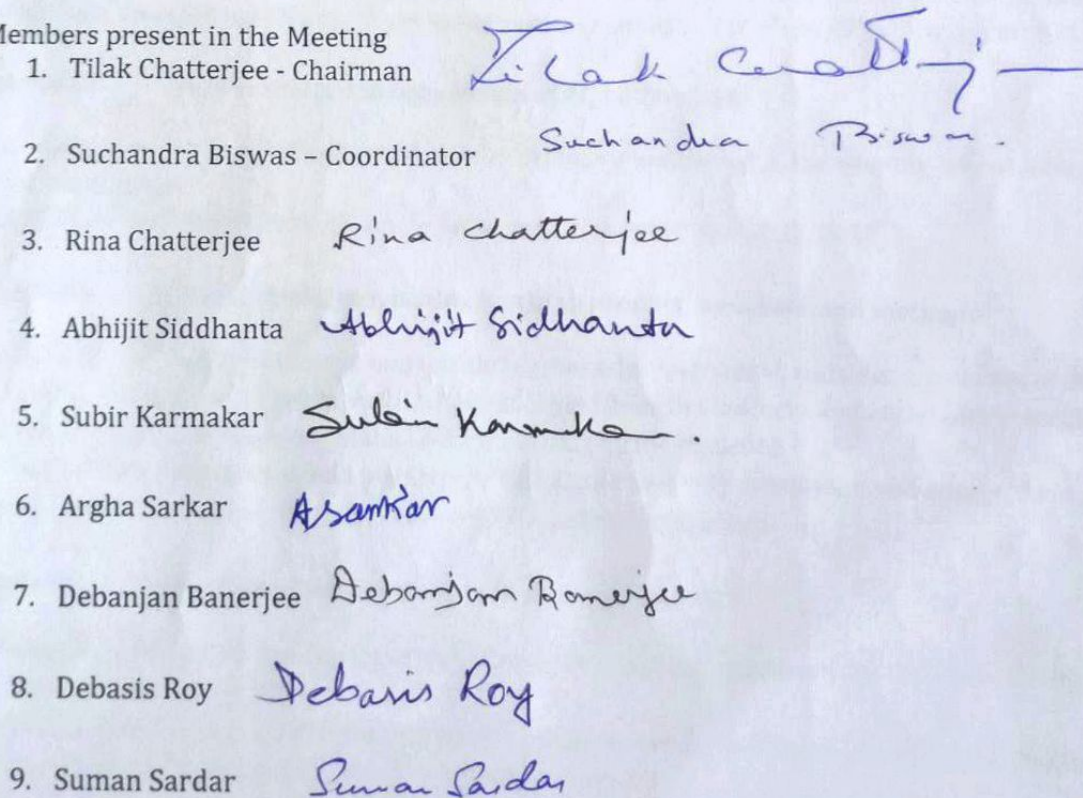 Members present in the Meeting
1. Tilak Chatterjee - Chairman Tilak Chatterjee
2. Suchandra Biswas – Coordinator Suchandra Biswas.
3. Rina Chatterjee Rina Chatterjee
4. Abhijit Siddhanta Abhijit Sidhanta
5. Subir Karmakar Subir Karmakar.
6. Argha Sarkar ASarkar
7. Debanjan Banerjee Debanjan Banerjee
8. Debasis Roy Debasis Roy
9. Suman Sardar Suman Sardar